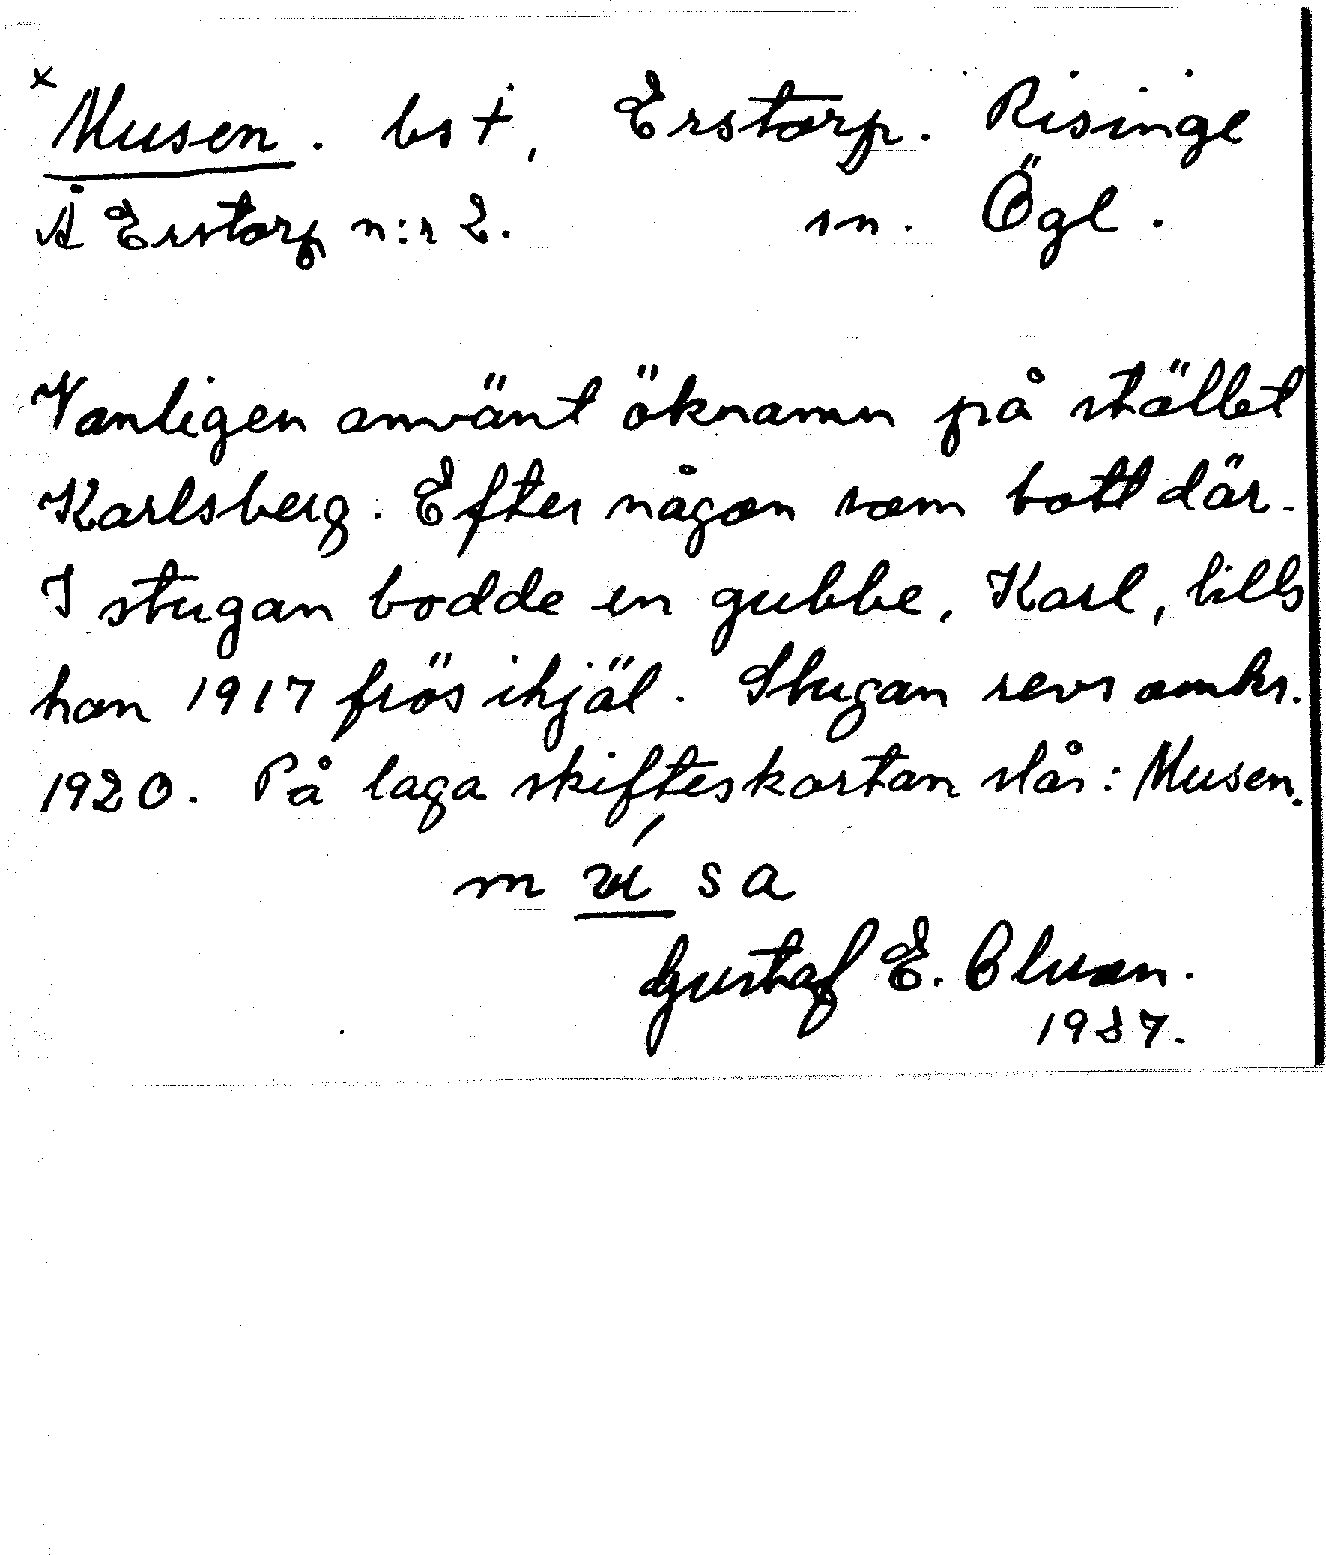 x Musen. bs †, Erstorp. Risinge
Å Erstorp n:r 2. sn. Ögl.
Vanligen använt öknamn på stället
Karlsberg. Efter någon som bott där.
I stugan bodde en gubbe, Karl, tills
han 1917 frös ihjäl. Stugan revs omkr.
1920. På laga skifteskartan står: Musen.
m ú s a
Gustaf E.